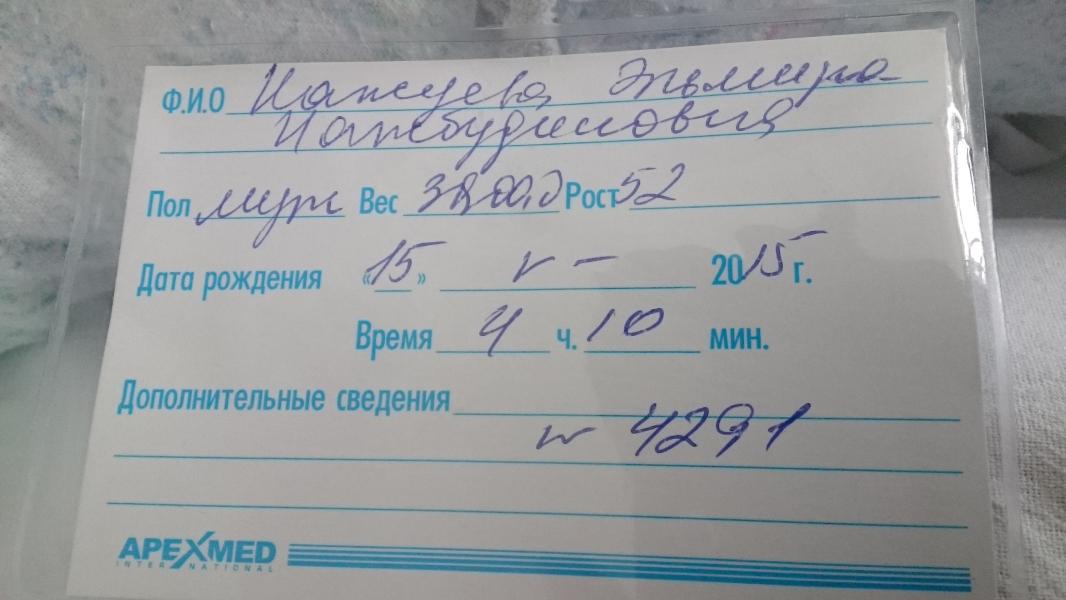 Ф.И.О Нажуева Эльмира
Нажбудиновна
Пол муж Вес 3800,0 Рост 52
Дата рождения «15» V - 2015 г.
Время 4 ч. 10 мин.
Дополнительные сведения
N 4291
APEXMED
INTERNATIONAL